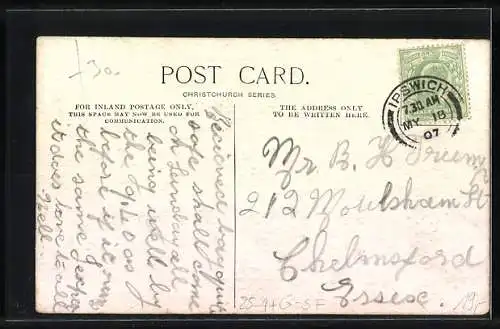 -/30
POST CARD.
CHRISTCHURCH SERIES.
FOR INLAND POSTAGE ONLY,
THIS SPACE MAY NOW BE USED FOR
COMMUNICATION.
THE ADDRESS ONLY
TO BE WRITTEN HERE.
IPSWICH
7.30 AM
MY 18
07
Recieved bag quite
safe shall come
on Sunday all
being well by
the 9.40 as
before if it runs
the same
to all
Nell
Mr B. H
212 Moulsham St
Chelmsford
Essex.